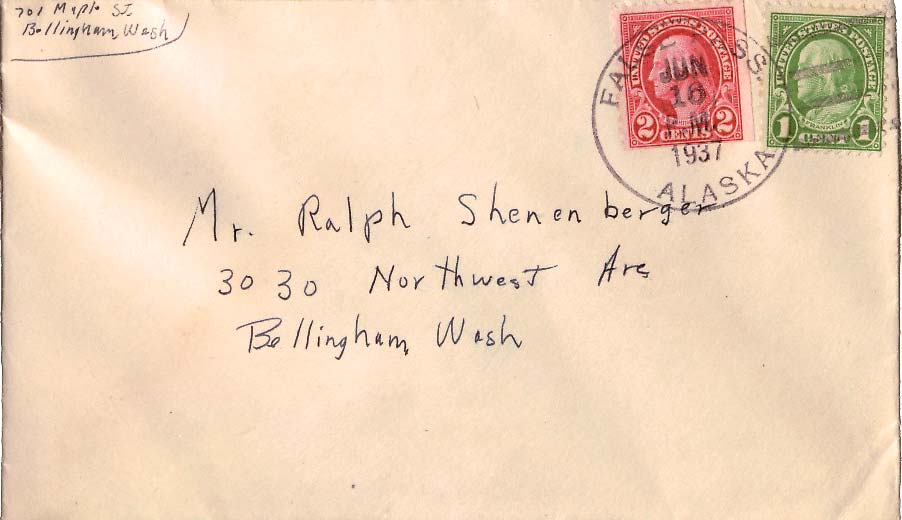 701 Maple St.
Bellingham, Wash
UNITED STATES POSTAGE
2 CENTS 2
UNITED STATES POSTAGE
FRANKLIN
1 CENT 1
FALSE PASS.
JUN
16
M
1937
ALASKA
Mr. Ralph Shenenberger
3030 Northwest Ave
Bellingham, Wash